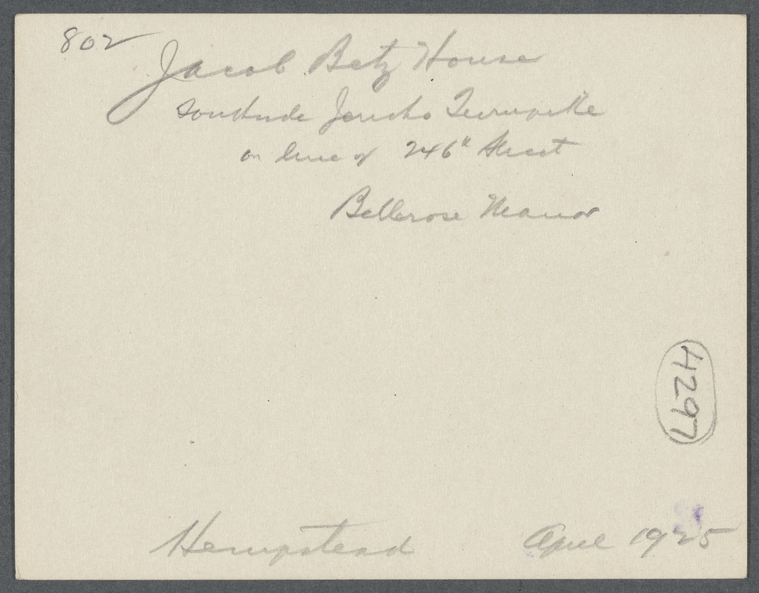 802
Jacob Betz House
southside Jericho Turnpike
on line of 246th Street
Bellerose Manor
4297
Hempstead April 1925